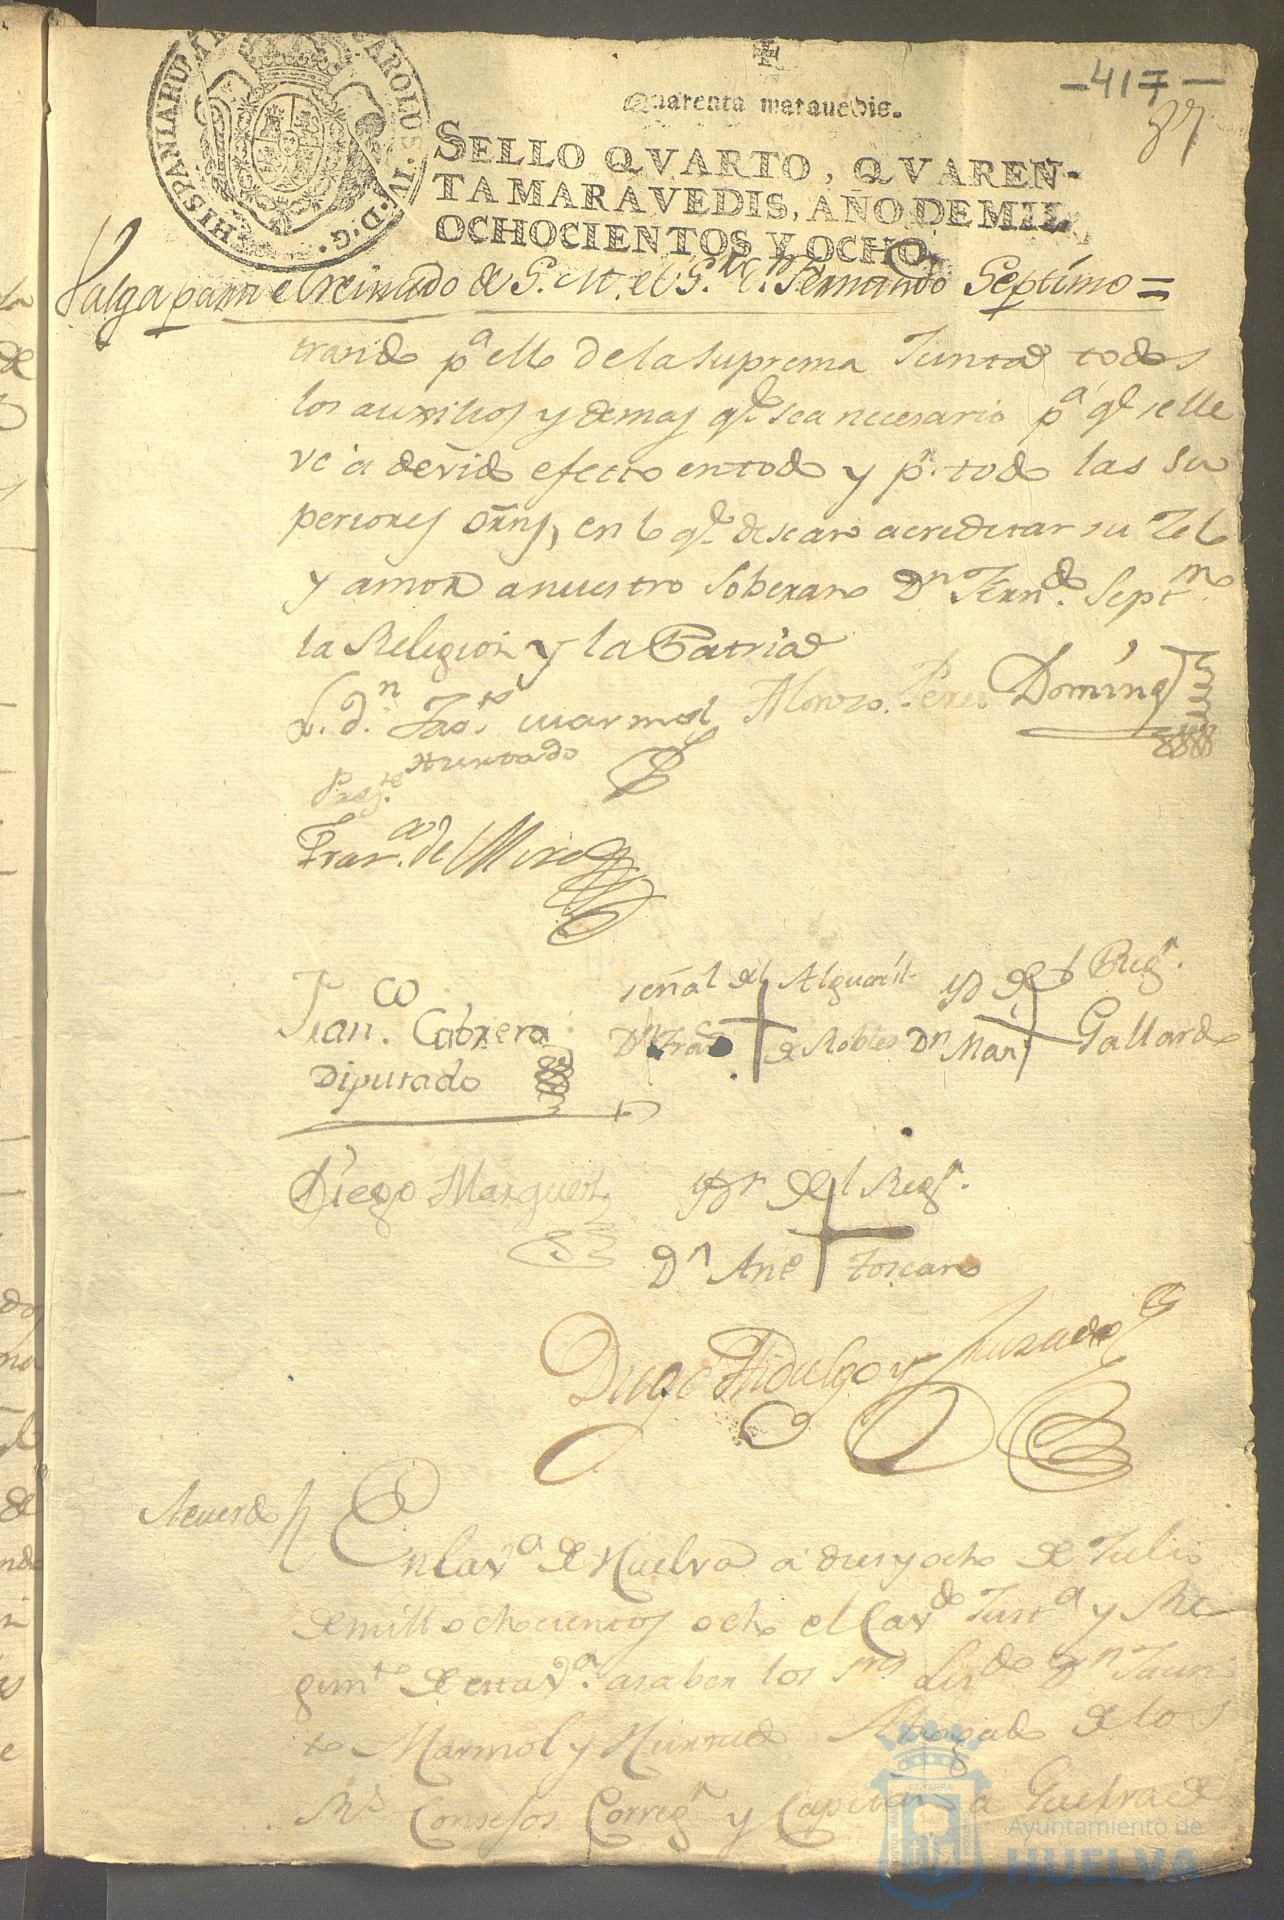 -417-
37
Quarenta maravedis.
HISPANIARUM CAROLUS · IV · D · G ·
SELLO QVARTO, QVAREN-
TA MARAVEDIS, AÑO DE MIL
OCHOCIENTOS Y OCHO.
Valga para el reinado de S. M. el Sr. D. Fernando Septimo =
trando pa ello de la suprema Junta todos
los auxilios y demas qe sea necesario pa qe se lle
ve a devido efecto en todo y pr todo las su
periores orns, en lo qe desean acreditar su Zelo
y amor a nuestro Soberano Dn Ferndo Septmo
la Religion y la Patria
L. dn Jao marmol Alonso Perez Doming
Hurtado
Franco de Miro
Franco Cabrera
Diputado
señal del Alguacil
Dn Franco de Robles
yd del Regr.
Dn Manl Gallardo
Diego Marquez
yd del Regr.
Dn Anto Toscano
Diego Hidalgo y Jurado
Acuerdo
En la va de Huelva a dies y ocho de Julio
de mill ochocientos ocho el Cavdo Justa y Re
gimto de esta va asaber los Srs Licdo Dn Jacin
to Marmol y Hurtado Abogado de los
Rs Consejos Corregr y Capitan a Guerra de
Ayuntamiento de
HUELVA